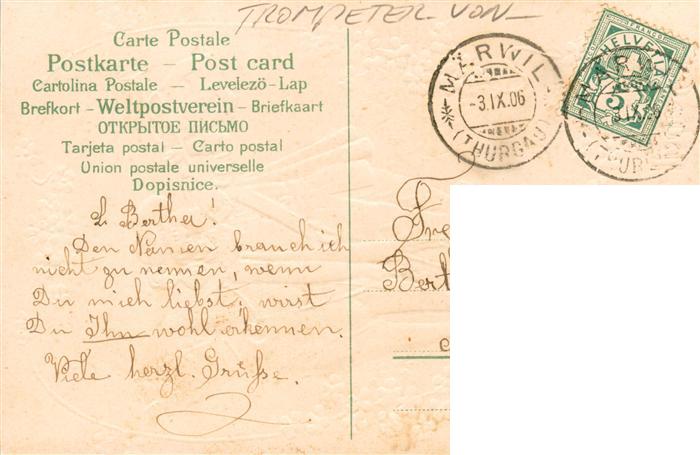 TROMPETER VON
Carte Postale
Postkarte – Post card
Cartolina Postale – Levelezö-Lap
Brefkort – Weltpostverein – Briefkaart
ОТКРЫТОЕ ПИСЬМО
Tarjeta postal – Carto postal
Union postale universelle
Dopisnice.
MÄRWIL
-3.IX.06
(THURGAU)
HELVETIA
FRANCO
5
L. Bertha!
Den Namen brauch ich
nicht zu nennen, wenn
Du mich liebst, wirst
Du Ihn wohl erkennen.
Viele herzl. Grüsse.
Fr
Bert